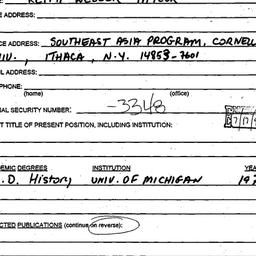 E ADDRESS:
CE ADDRESS: SOUTHEAST ASIA PROGRAM, CORNELL
IV., ITHACA, N.Y. 14853-7601
L ADDRESS:
PHONE:
(home) (office)
AL SECURITY NUMBER: -3348
T TITLE OF PRESENT POSITION, INCLUDING INSTITUTION:
EMIC DEGREES INSTITUTION YEA
.D. History UNIV. OF MICHIGAN 19
CTED PUBLICATIONS (continue on reverse):